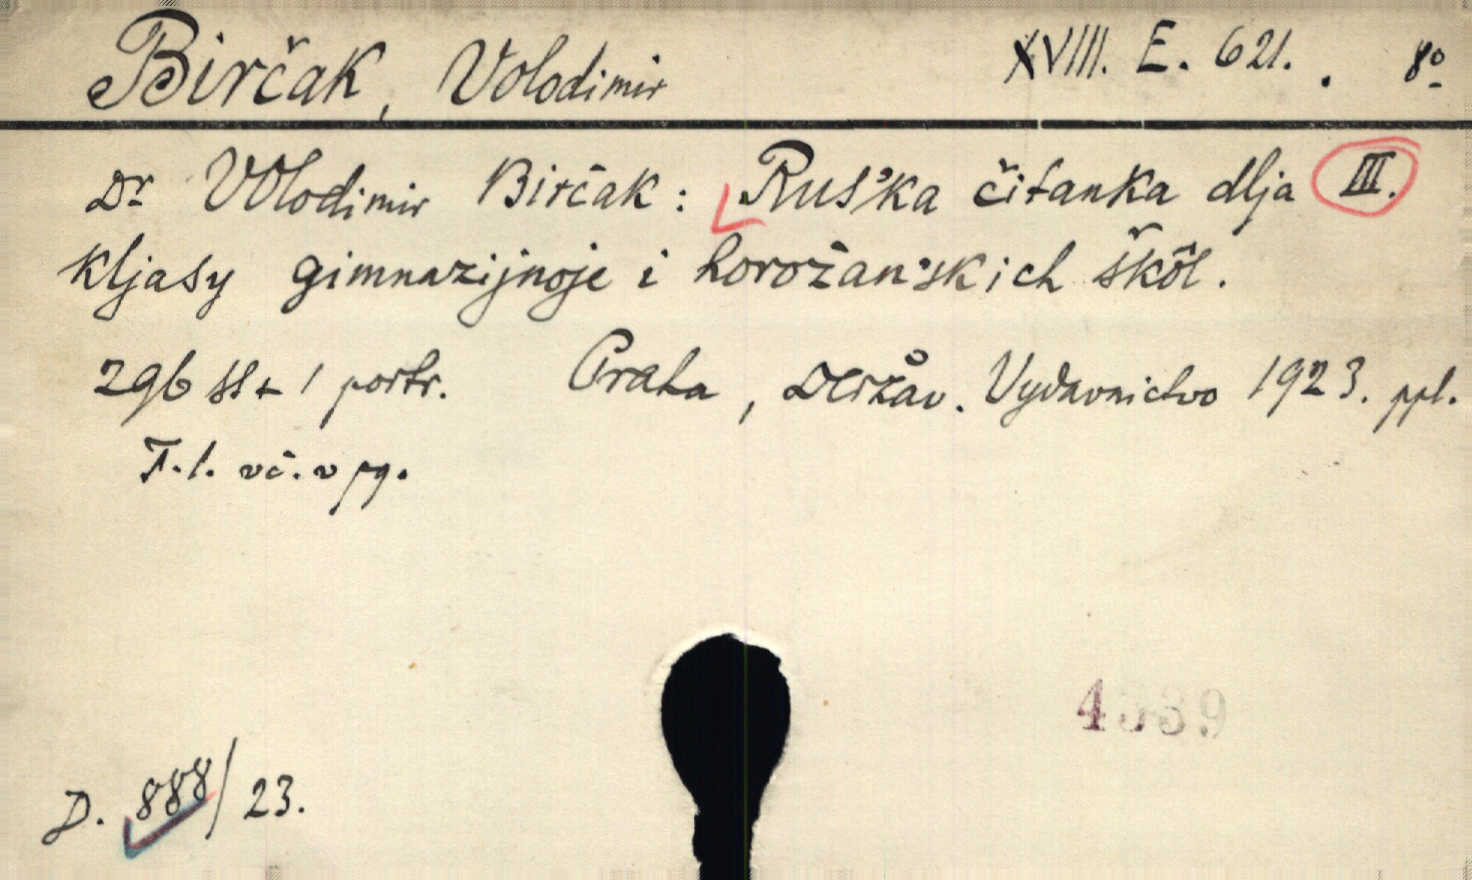 Birčak, Volodimir XVIII. E. 621. 8°
Dr Volodimir Birčak: Rus'ka čitanka dlja III.
kljasy gimnazijnoje i horožan'skich škôl.
296 ss + 1 portr. Praha, Deržav. Vydavnictvo 1923. ppl.
T. l. vč. v pg.
4539
D. 888/23.